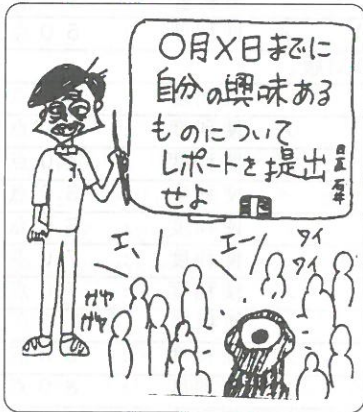 〇月×日までに
自分の興味ある
ものについて
レポートを提出
せよ
日直 石井
エ、
エー
ワイ
ワイ
ガヤ
ガヤ